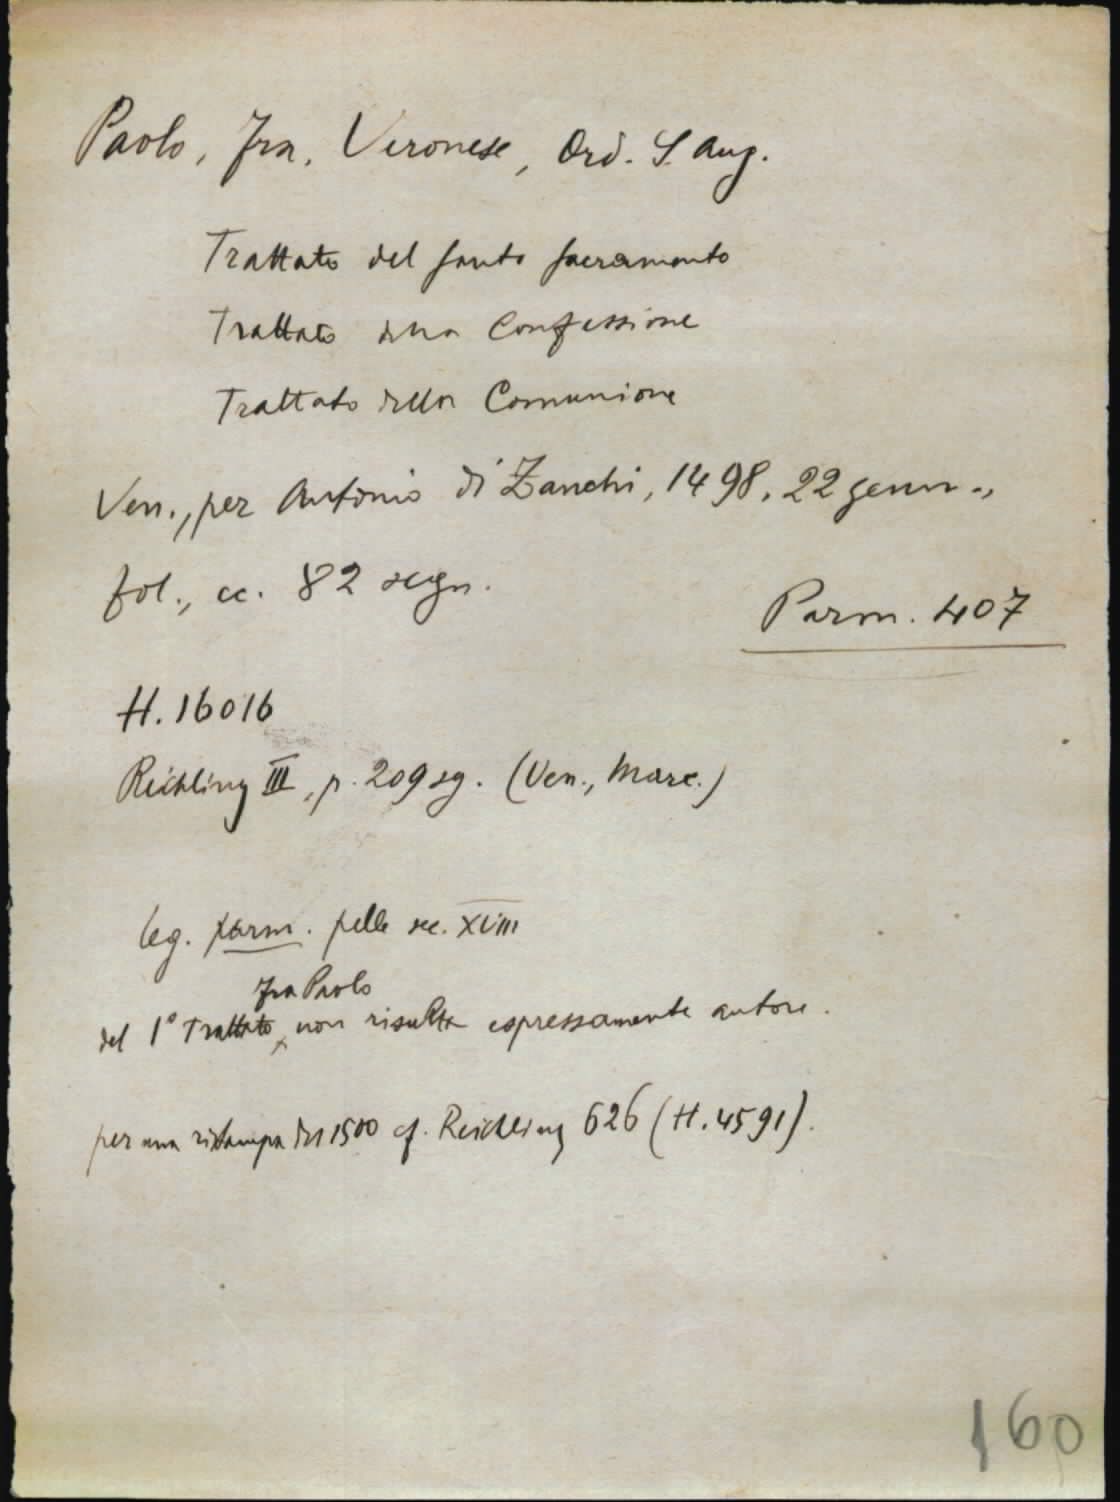 Paolo, Fra, Veronese, Ord. S. Aug.
Trattato del santo sacramento
Trattato della Confessione
Trattato della Comunione
Ven., per Antonio di Zanchi, 1498, 22 genn.,
fol., cc. 82 segn.
Parm. 407
H. 16016
Reichling III, p. 209 sg. (Ven., Marc.)
leg. parm. pelle sec. XVIII
fra Paolo
del 1° Trattato non risulta espressamente autore.
per una ristampa del 1500 cf. Reichling 626 (H. 4591).
160